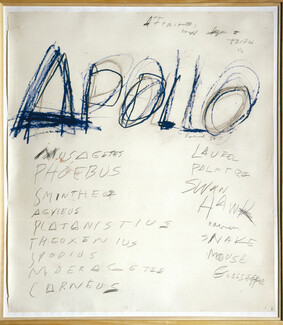 APOLLO
MUSAGETES
PHOEBUS
AGYIEUS
PLATANISTIUS
THEOXENIUS
SPODIUS
MOERAGETES
CARNEUS
LAUREL
PALM TREE
SWAN
HAWK
SNAKE
MOUSE